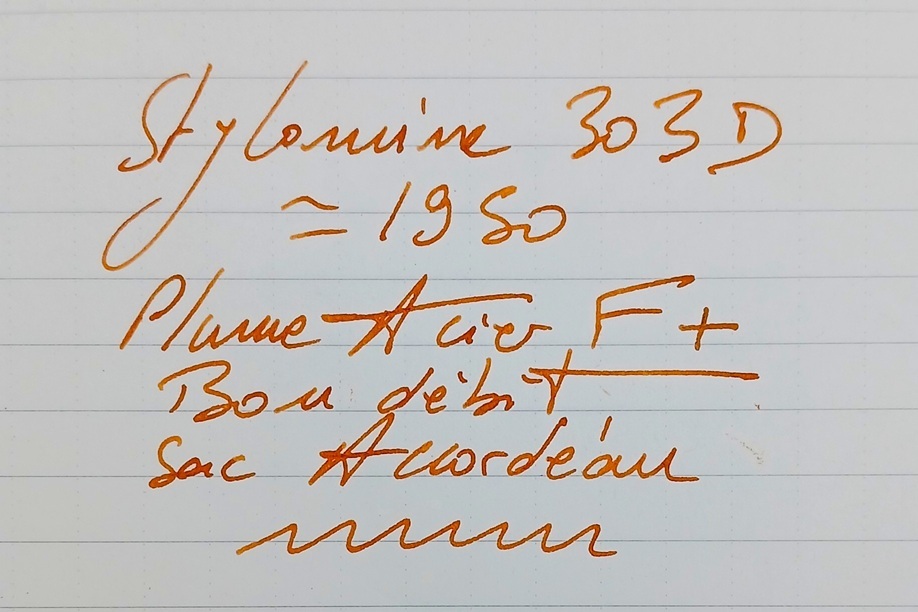 Stylomine 303 D
≃ 1950
Plume Acier F +
Bon débit
Sac Accordéon